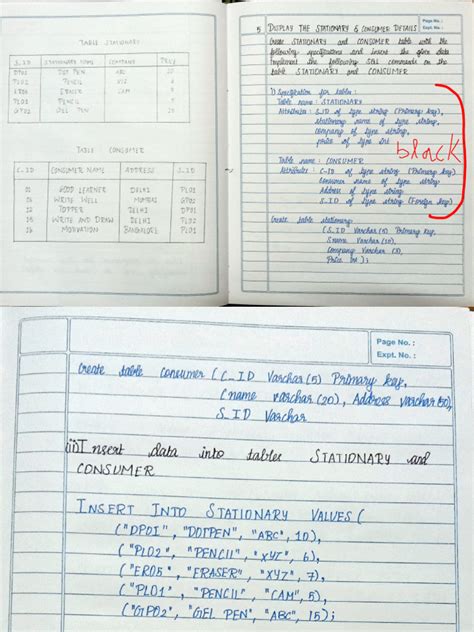 TABLE STATIONARY
S_ID STATIONARY NAME COMPANY PRICE
DP01 DOT PEN ABC 10
PL02 PENCIL XYZ 6
ER05 ERASER
PL01 PENCIL 5
GP02 GEL PEN
TABLE CONSUMER
C_ID CONSUMER NAME ADDRESS S_ID
01 GOOD LEARNER DELHI PL01
06 WRITE WELL MUMBAI GP02
12 TOPPER DELHI DP01
15 WRITE AND DRAW DELHI PL02
16 MOTIVATION BANGALORE PL01
Page No. :
Expt. No. :
5 DISPLAY THE STATIONARY & CONSUMER DETAILS
Create STATIONARY and CONSUMER table with the
following specifications and insert the given data
Implement the following SQL commands on the
table STATIONARY and CONSUMER
i) Specification for tables:
Table name : STATIONARY
Attributes : S_ID of type string (Primary key),
stationary name of type string,
company of type string,
price of type int
black
Table name : CONSUMER
Attributes : C_ID of type string (Primary key)
Consumer name of type string
Address of type string
S_ID of type string (Foreign key)
Create table stationary
(S_ID Varchar (5) Primary key,
Sname Varchar (20),
Company Varchar
Price int );
Page No. :
Expt. No. :
Create table consumer ( C_ID Varchar (5) Primary key,
Cname varchar (20), Address varchar (50),
S_ID Varchar
(ii) Insert data into tables STATIONARY and
CONSUMER
INSERT INTO STATIONARY VALUES (
("DP01", "DOTPEN", "ABC", 10),
("PL02", "PENCIL", "XYZ", 6),
("ER05", "ERASER", "XYZ", 7),
("PL01", "PENCIL", "CAM", 5),
("GP02", "GEL PEN", "ABC", 15);